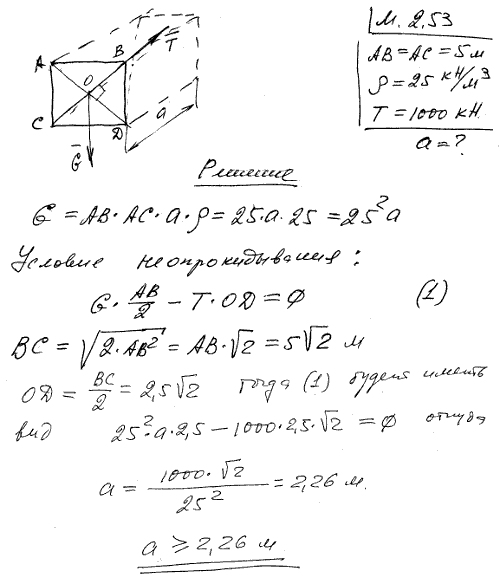 М. 2,53
AB = AC = 5 м
ρ = 25 кН/м³
T = 1000 кН.
a = ?
A
B
T̅
O
C
D
a
G̅
Решение
G = AB · AC · a · ρ = 25 · a · 25 = 25² a
Условие неопрокидывания:
G · AB/2 − T · OD = 0 (1)
BC = √(2 · AB²) = AB · √2 = 5√2 м
OD = BC/2 = 2,5√2 тогда (1) будет иметь
вид 25² · a · 2,5 − 1000 · 2,5 · √2 = 0 откуда
a = 1000 · √2 / 25² = 2,26 м.
a ≥ 2,26 м